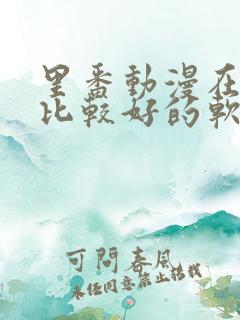 里番動漫在
比較好的軟
可問春風
未经同意禁止转载